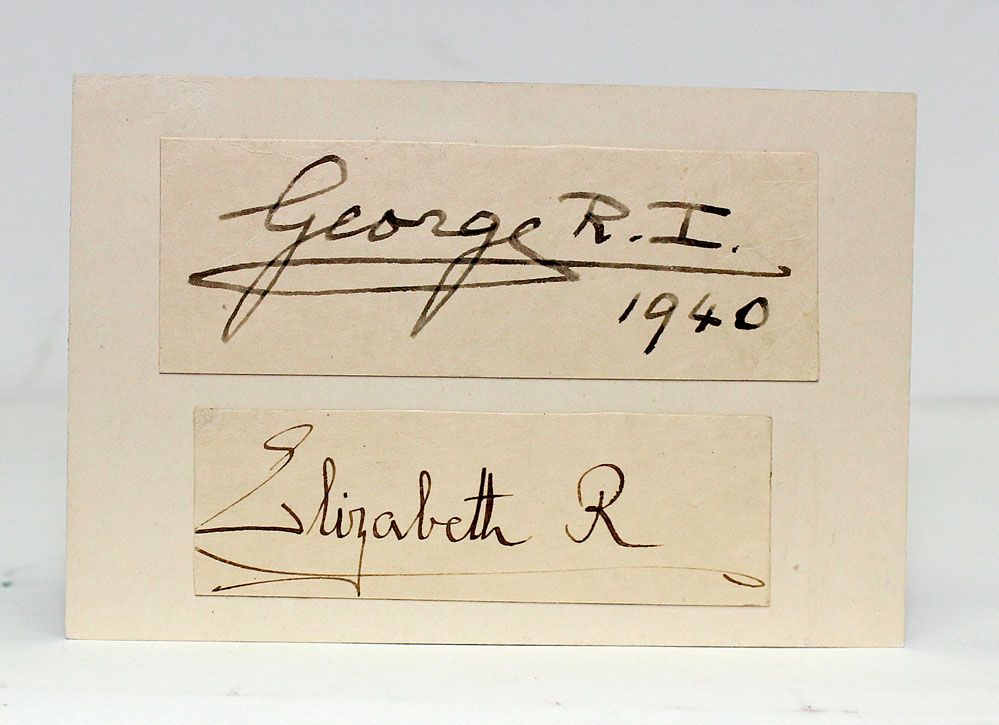 George R.I.
1940
Elizabeth R